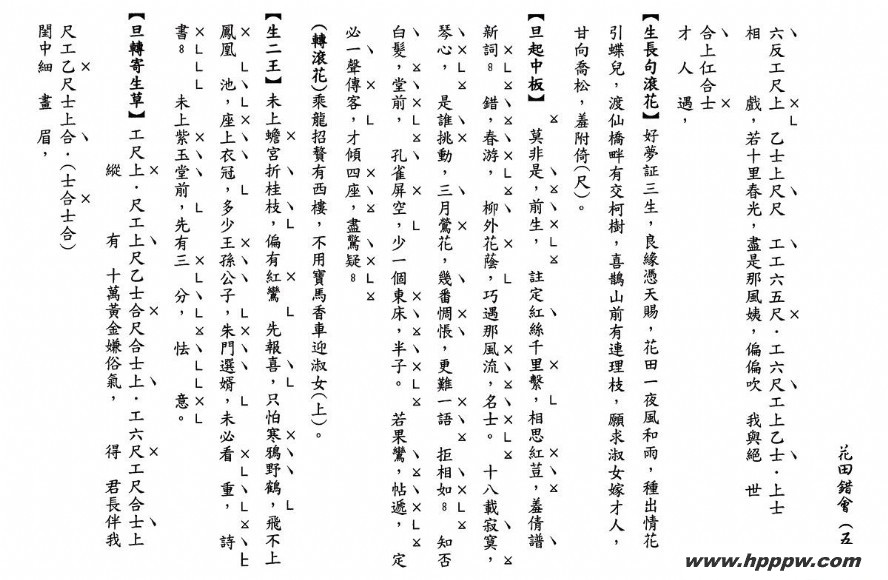 花田錯會（五
六反工尺上　乙士上尺尺　工工六五尺．工六尺工上乙士．上士
相　　戲，若十里春光，盡是那風姨，偏偏吹　我與絕　世
合上仜合士
才　人　遇，
【生長句滾花】好夢証三生，良緣憑天賜，花田一夜風和雨，種出情花
引蝶兒，渡仙橋畔有交柯樹，喜鵲山前有連理枝，願求淑女嫁才人，
甘向喬松，羞附倚（尺）。
【旦起中板】　莫非是，前生，　註定紅絲千里繫，相思紅荳，羞倩譜
新詞。　錯，春游，　柳外花蔭，巧遇那風流，名士。　十八載寂寞，
琴心，　是誰挑動，三月鶯花，幾番惆悵，更難一語　拒相如。　知否
白髮，堂前，　孔雀屏空，少一個東床，半子。　若果鸞，帖遞，　定
必一聲傳客，才傾四座，盡驚疑。
（轉滾花）乘龍招贅有西樓，不用寶馬香車迎淑女（上）。
【生二王】未上蟾宮折桂枝，偏有紅鸞　先報喜，只怕寒鴉野鶴，飛不上
鳳凰　池，座上衣冠，多少王孫公子，朱門選婿，未必看　重，　詩
書。　未上紫玉堂前，先有三　分，　怯　意。
【旦轉寄生草】工尺上．尺工上尺乙士合尺合士上．工六尺工尺合士上
縱　　有　十萬黃金嫌俗氣，　　得　君長伴我
尺工乙尺士上合．（士合士合）
閨中細　畫　眉，
www.hpppw.com